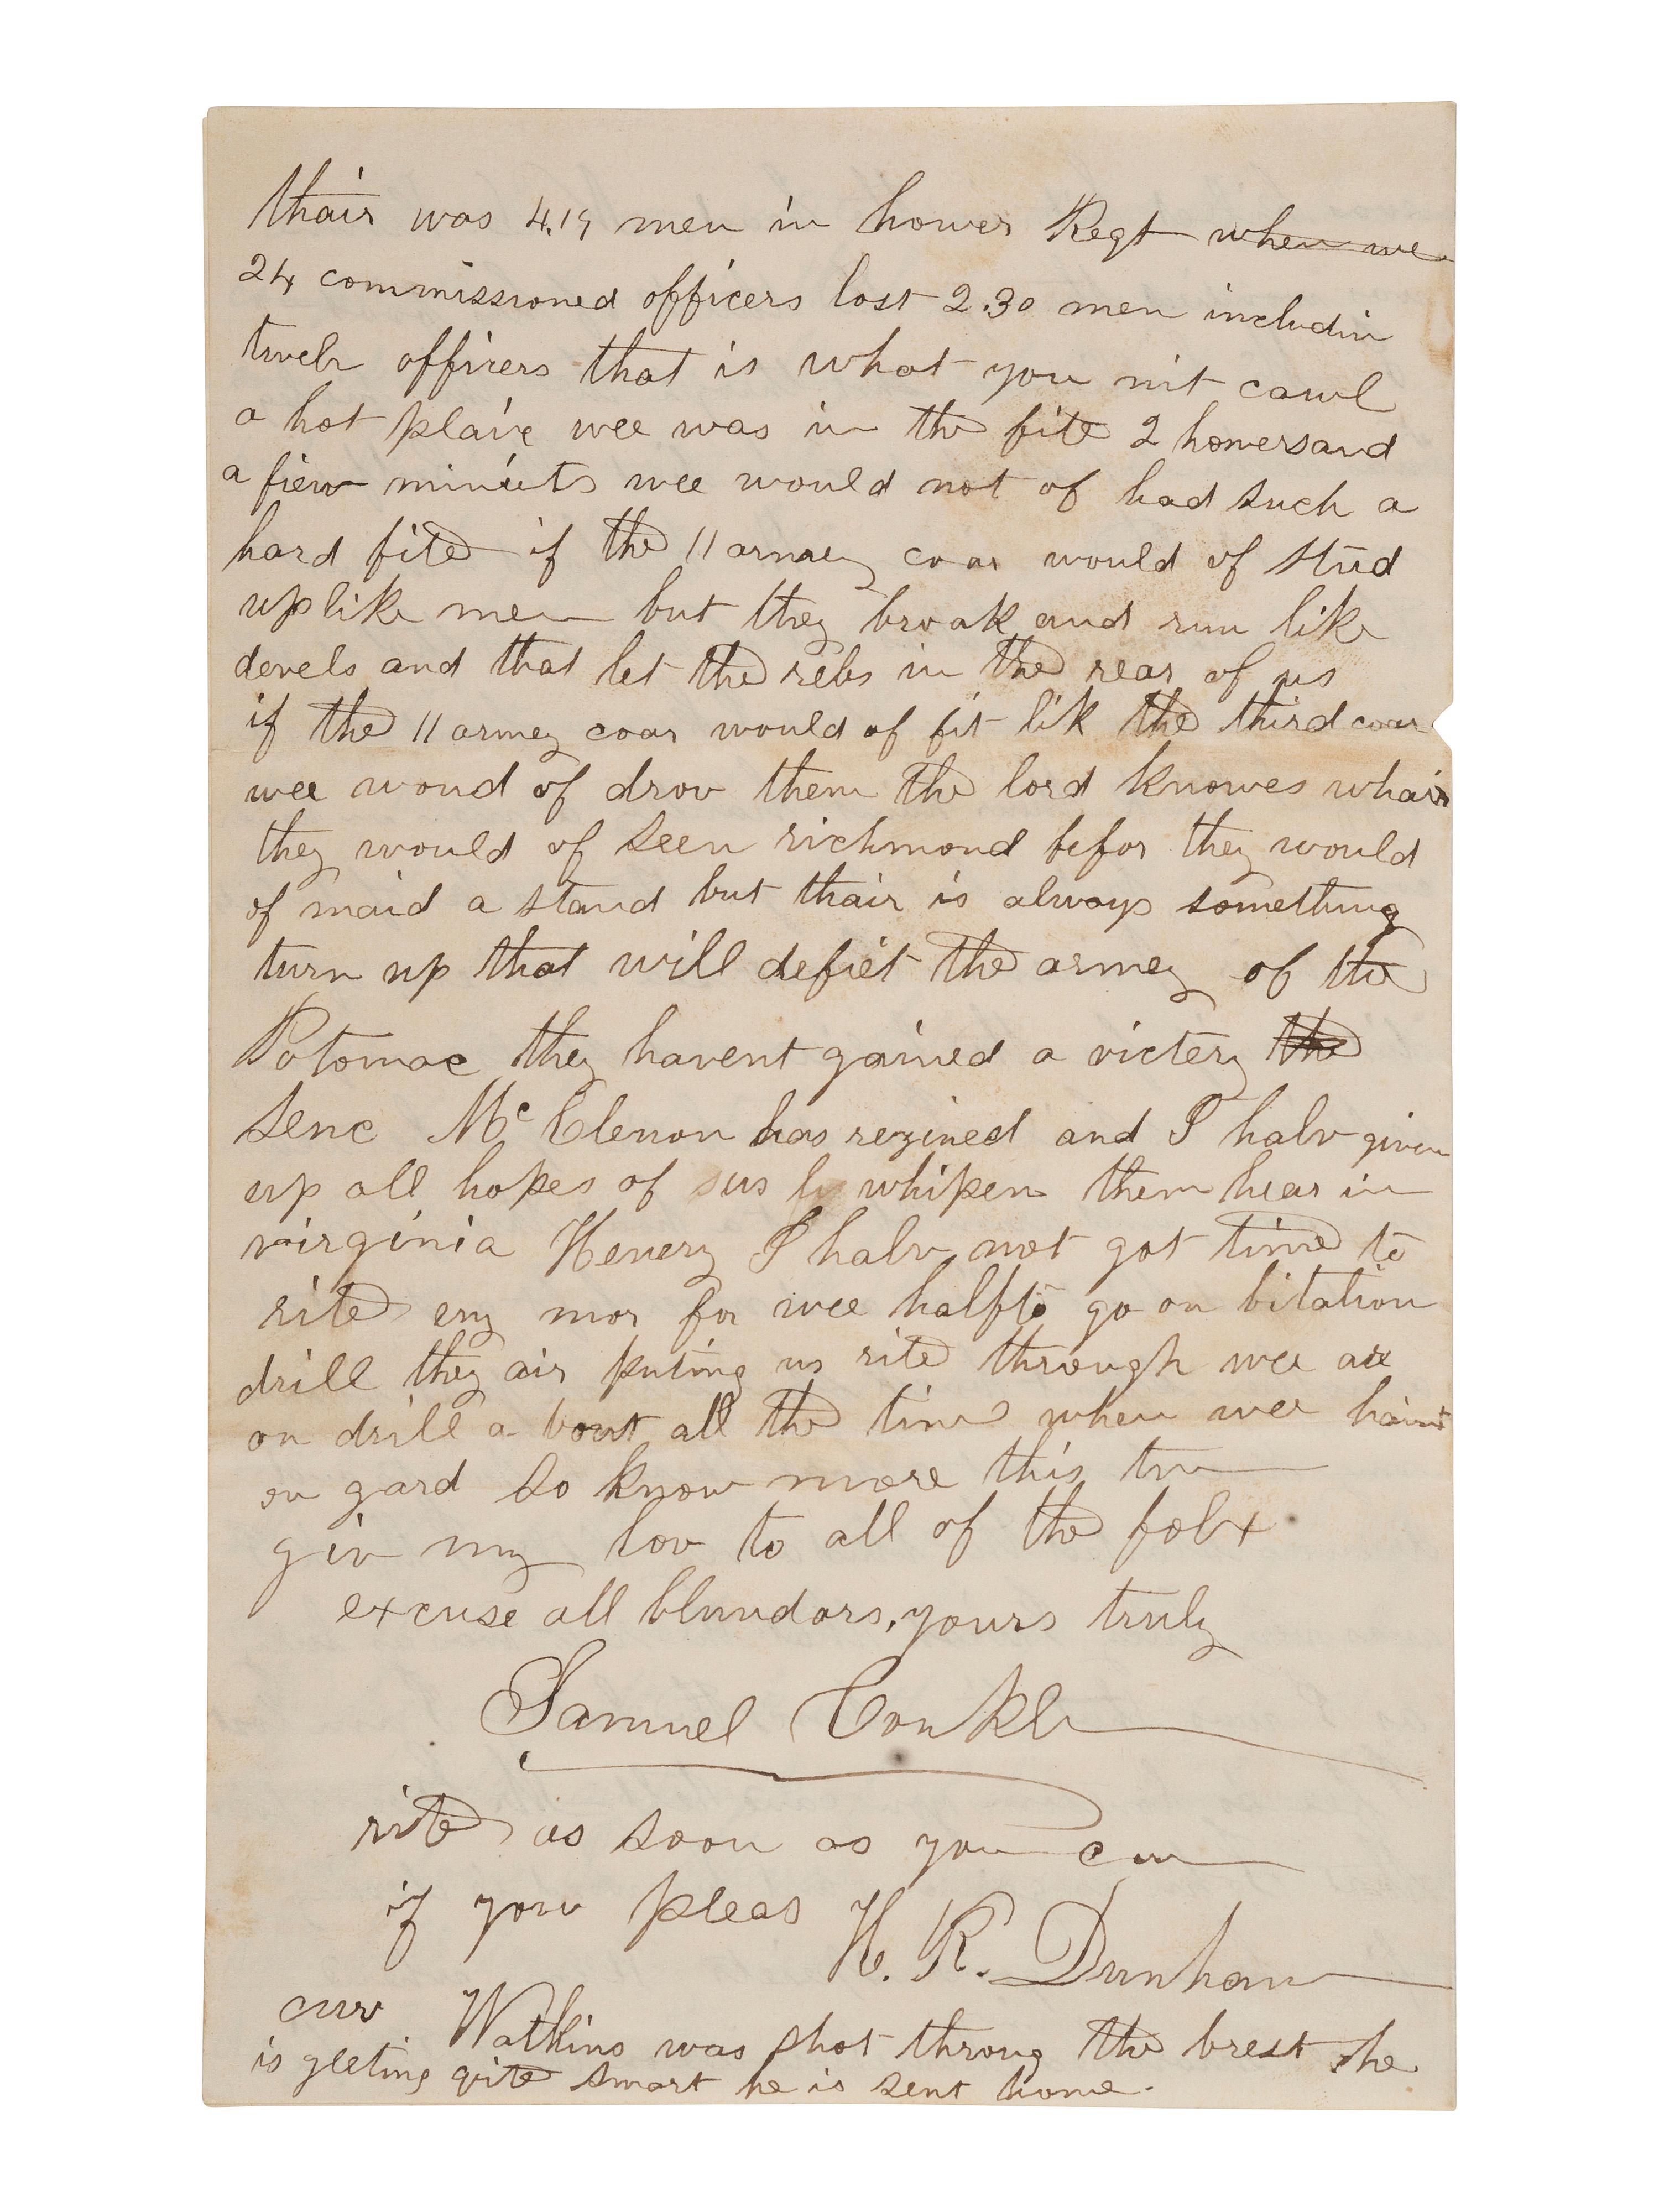 thair was 4.19 men in hower Regt when we
24 commissioned officers lost 2.30 men includin
twelv officers that is what you mit cawl
a hot plaice wee was in the fite 2 howers and
a fiew minuets wee would not of had such a
hard fite if the 11 armey coar would of stud
up like men but they broak and run like
devels and that let the rebs in the rear of us
if the 11 armey coar would of fit lik the third coar
wee woud of drov them the lord knowes whair
they would of seen richmond befor they would
of maid a stand but thair is always something
turn up that will defiet the armey of the
Potomac they havent gained a victery the
senc Mc Clenon has rezined and I halv given
up all hopes of us whipen them hear in
virginia Henery I halv not got time to
rite eny mor for wee halft to go on bitalion
drill they air puting us rite through wee are
on drill a bout all the time when wee haint
on gard so know more this time
giv my lov to all of the folx
excuse all blundors, yours truly
Samuel Conkle
rite as soon as you can
if you pleas H. R. Dunham
Watkins was shot throug the brest he
is geeting qite smart he is sent home.